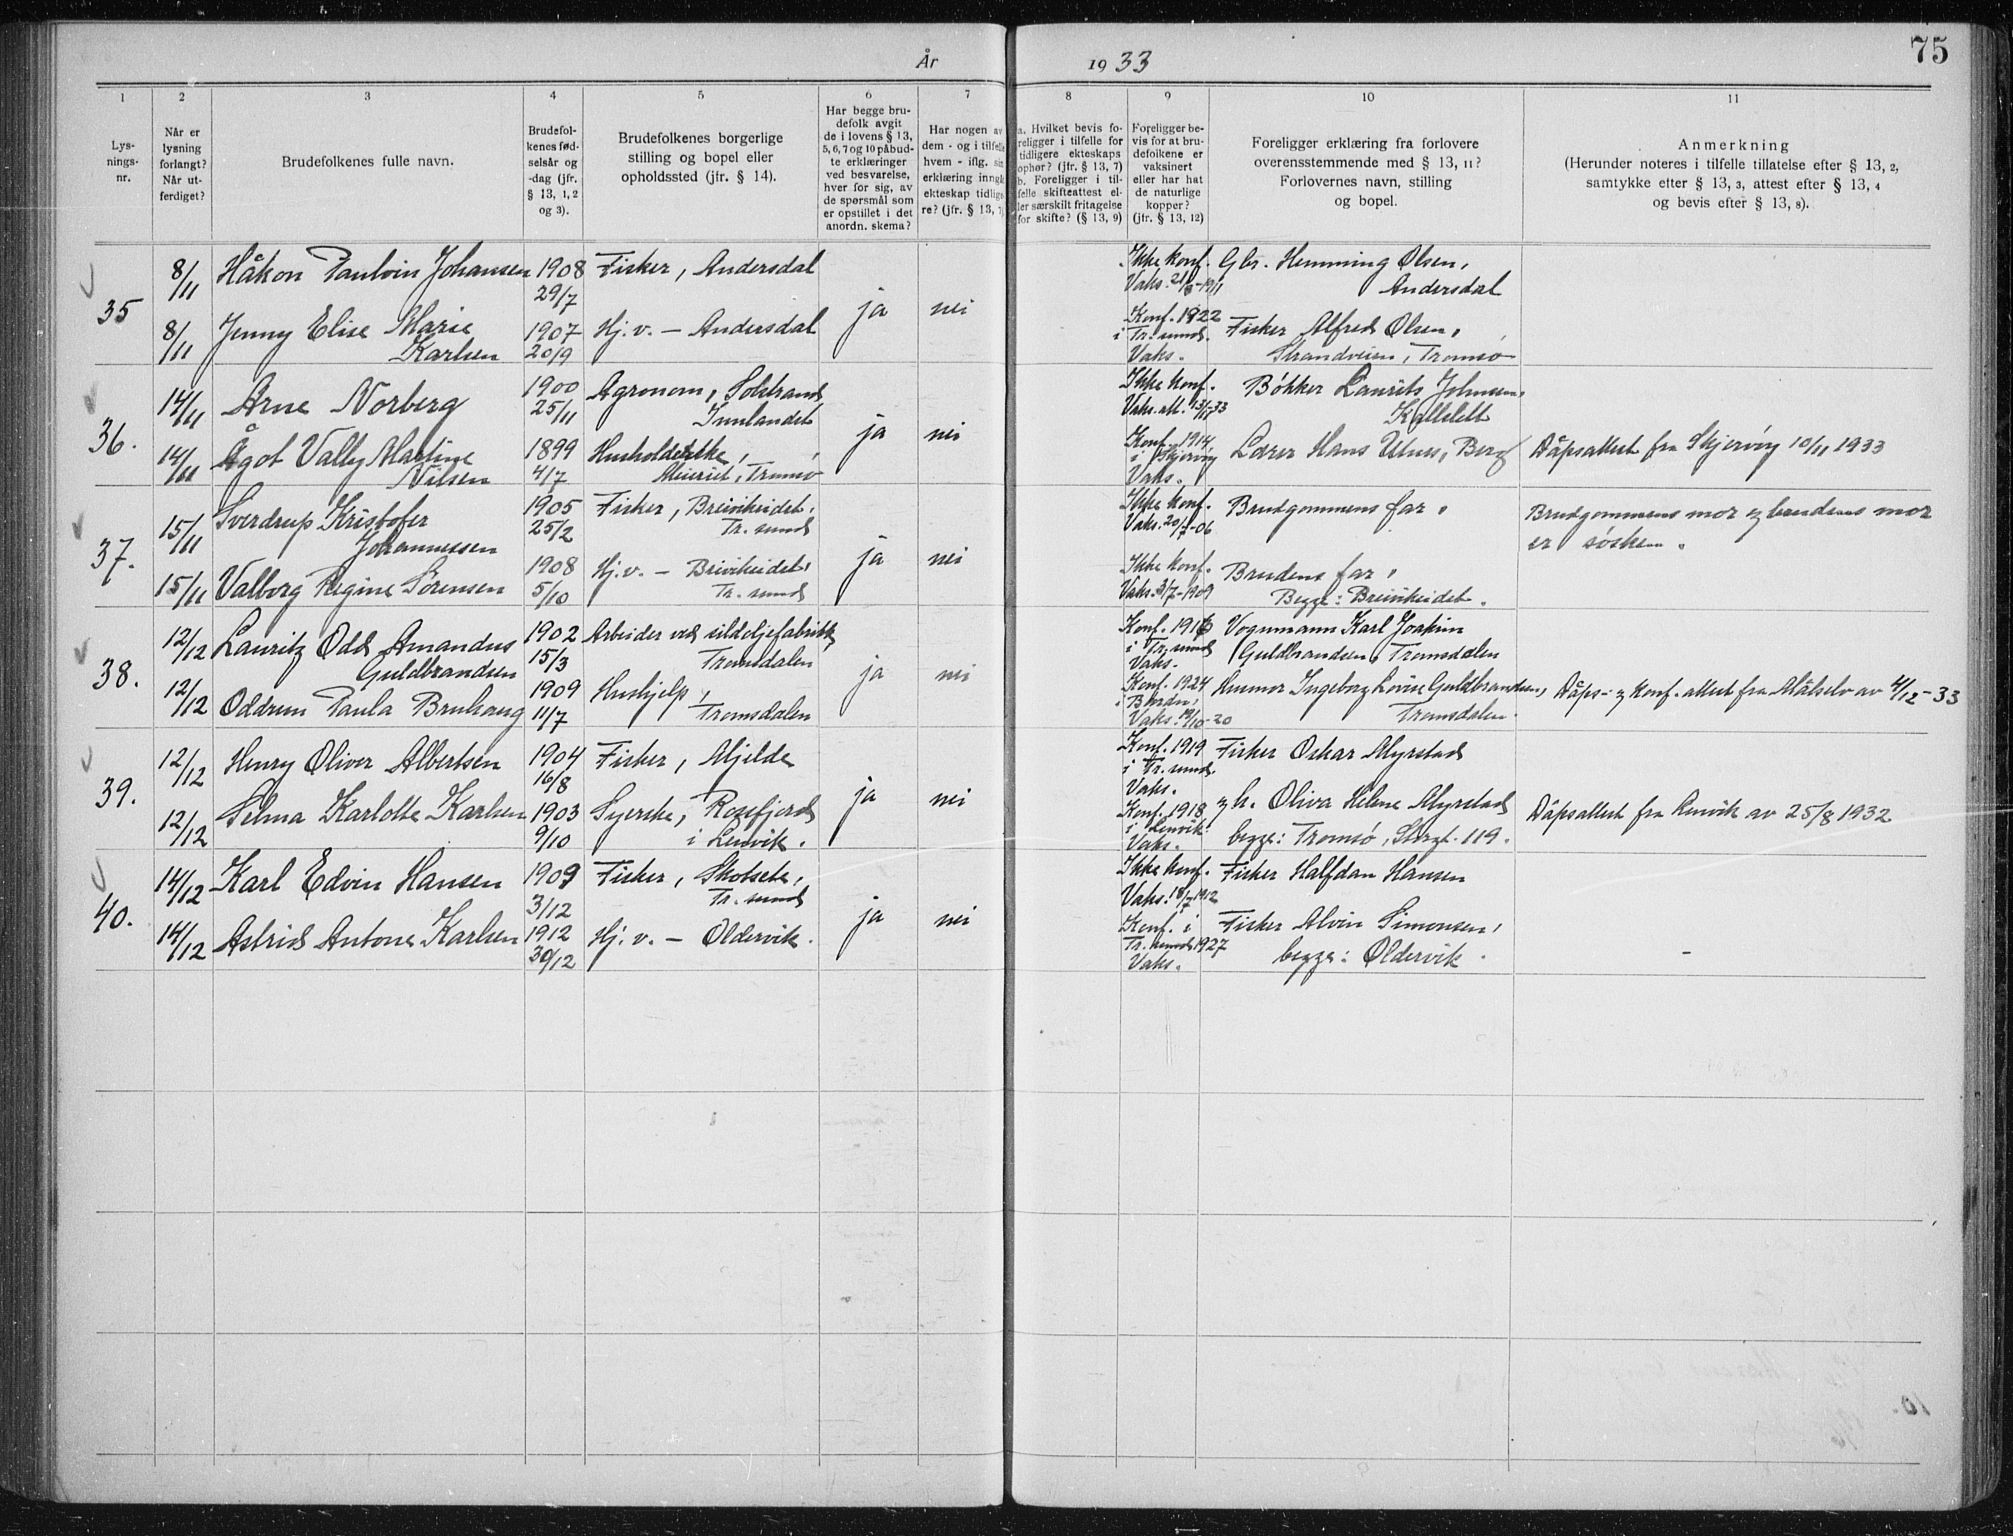 År 1933
75
1
Lys-
nings-
nr.
2
Når er
lysning
forlangt?
Når ut-
ferdiget?
3
Brudefolkenes fulle navn.
4
Brudefol-
kenes fød-
selsår og
-dag (jfr.
§ 13, 1, 2
og 3).
5
Brudefolkenes borgerlige
stilling og bopel eller
opholdssted (jfr. § 14).
6
Har begge bru-
defolk avgit
de i lovens § 13,
5, 6, 7 og 10 påbud-
te erklæringer
ved besvarelse,
hver for sig, av
de spørsmål som
er opstillet i det
anordn. skema?
7
Har nogen av
dem - og i tilfelle
hvem - iflg. sin
erklæring inngå
ekteskap tidlige-
re? (jfr. § 13, 7)
8
a. Hvilket bevis fo-
religger i tilfelle for
tidligere ekteskaps
ophør? (jfr. § 13, 7)
b. Foreligger i til-
felle skifteattest el-
ler særskilt fritagelse
for skifte? (§ 13, 9)
9
Foreligger be-
vis for at bru-
defolkene er
vaksinert
eller har hat
de naturlige
kopper?
(jfr. § 13, 12)
10
Foreligger erklæring fra forlovere
overensstemmende med § 13, 11?
Forlovernes navn, stilling
og bopel.
11
Anmerkning
(Herunder noteres i tilfelle tillatelse efter § 13, 2,
samtykke efter § 13, 3, attest efter § 13, 4
og bevis efter § 13, 8).
35
8/11 Håkon Paulvin Johansen 1908 Fisker, Andersdal
29/7
ja nei
Ikke konf. Gbr. Hemming Olsen,
Vaks. Andersdal
8/11 Jenny Elise Marie 1907 Hj.v. – Andersdal
Karlsen 20/9
Konf. 1922
i Tr. sund. Fisker Alfred Olsen,
Vaks. Strandveien, Tromsø
36.
14/11 Arne Norberg 1900 Agronom, Solstrand
25/11 Innlandet
ja nei
Ikke konf. Bøkker Laurits Johnsen,
Vaks. att. 13/11 33 Kallslett
14/11 Ågot Vally Martine 1899
Nilsen 4/7 Meieriet, Tromsø
Konf. 1914
i Skjervøy Lærer Hans Utnes, Berg Dåpsattest fra Skjervøy 10/11 1933
Vaks.
37.
15/11 Sverdrup Kristofer 1905 Fisker, Breivikeidet,
Johannessen 25/2 Tr. sund
ja nei
Ikke konf. Brudgommens far, Brudgommens mor og brudens mor
Vaks. 20/7-06 er søsken.
15/11 Valborg Regine Sørensen 1908 Hj.v. – Breivikeidet,
5/10 Tr. sund
Ikke konf. Brudens far,
Vaks. 3/7-1909 Begge: Breivikeidet.
38.
12/12 Lauritz Odd Amandus 1902 Arbeider ved sildoljefabrikk,
Guldbrandsen 15/3 Tromsdalen
ja nei
Konf. 1916 Vognmann Karl Joakim
i Tr. sund Guldbrandsen, Tromsdalen
Vaks.
12/12 Oddrun Paula Bruhaug 1909 Hushjelp,
11/7 Tromsdalen
Konf. 1924 Husmor Ingeborg Lovise Guldbrandsen, Dåps- og Konf. attest fra Målselv av 4/12-33
Tromsdalen.
Vaks. 19/10-20
39.
12/12 Henry Oliver Albertsen 1904 Fisker, Mjelde
16/8
ja nei
Konf. 1919 Fisker Oskar Myrstad
i Tr. sund.
Vaks.
12/12 Selma Karlotte Karlsen 1903 Syerske, Rossfjord
9/10 i Lenvik.
Konf. 1918 og h. Oliva Helene Myrstad Dåpsattest fra Lenvik av 25/8 1932
i Lenvik. begge: Tromsø, Storgt. 119.
Vaks.
40.
14/12 Karl Edvin Hansen 1909 Fisker, Skotsete,
3/12 Tr. sund
ja nei
Ikke konf. Fisker Halfdan Hansen
Vaks. 18/7 1912
14/12 Astrid Antone Karlsen 1912 Hj.v. – Oldervik.
30/12
Konf. i Fisker Alvin Simonsen,
Tr. sund 1927 begge: Oldervik.
Vaks.
–